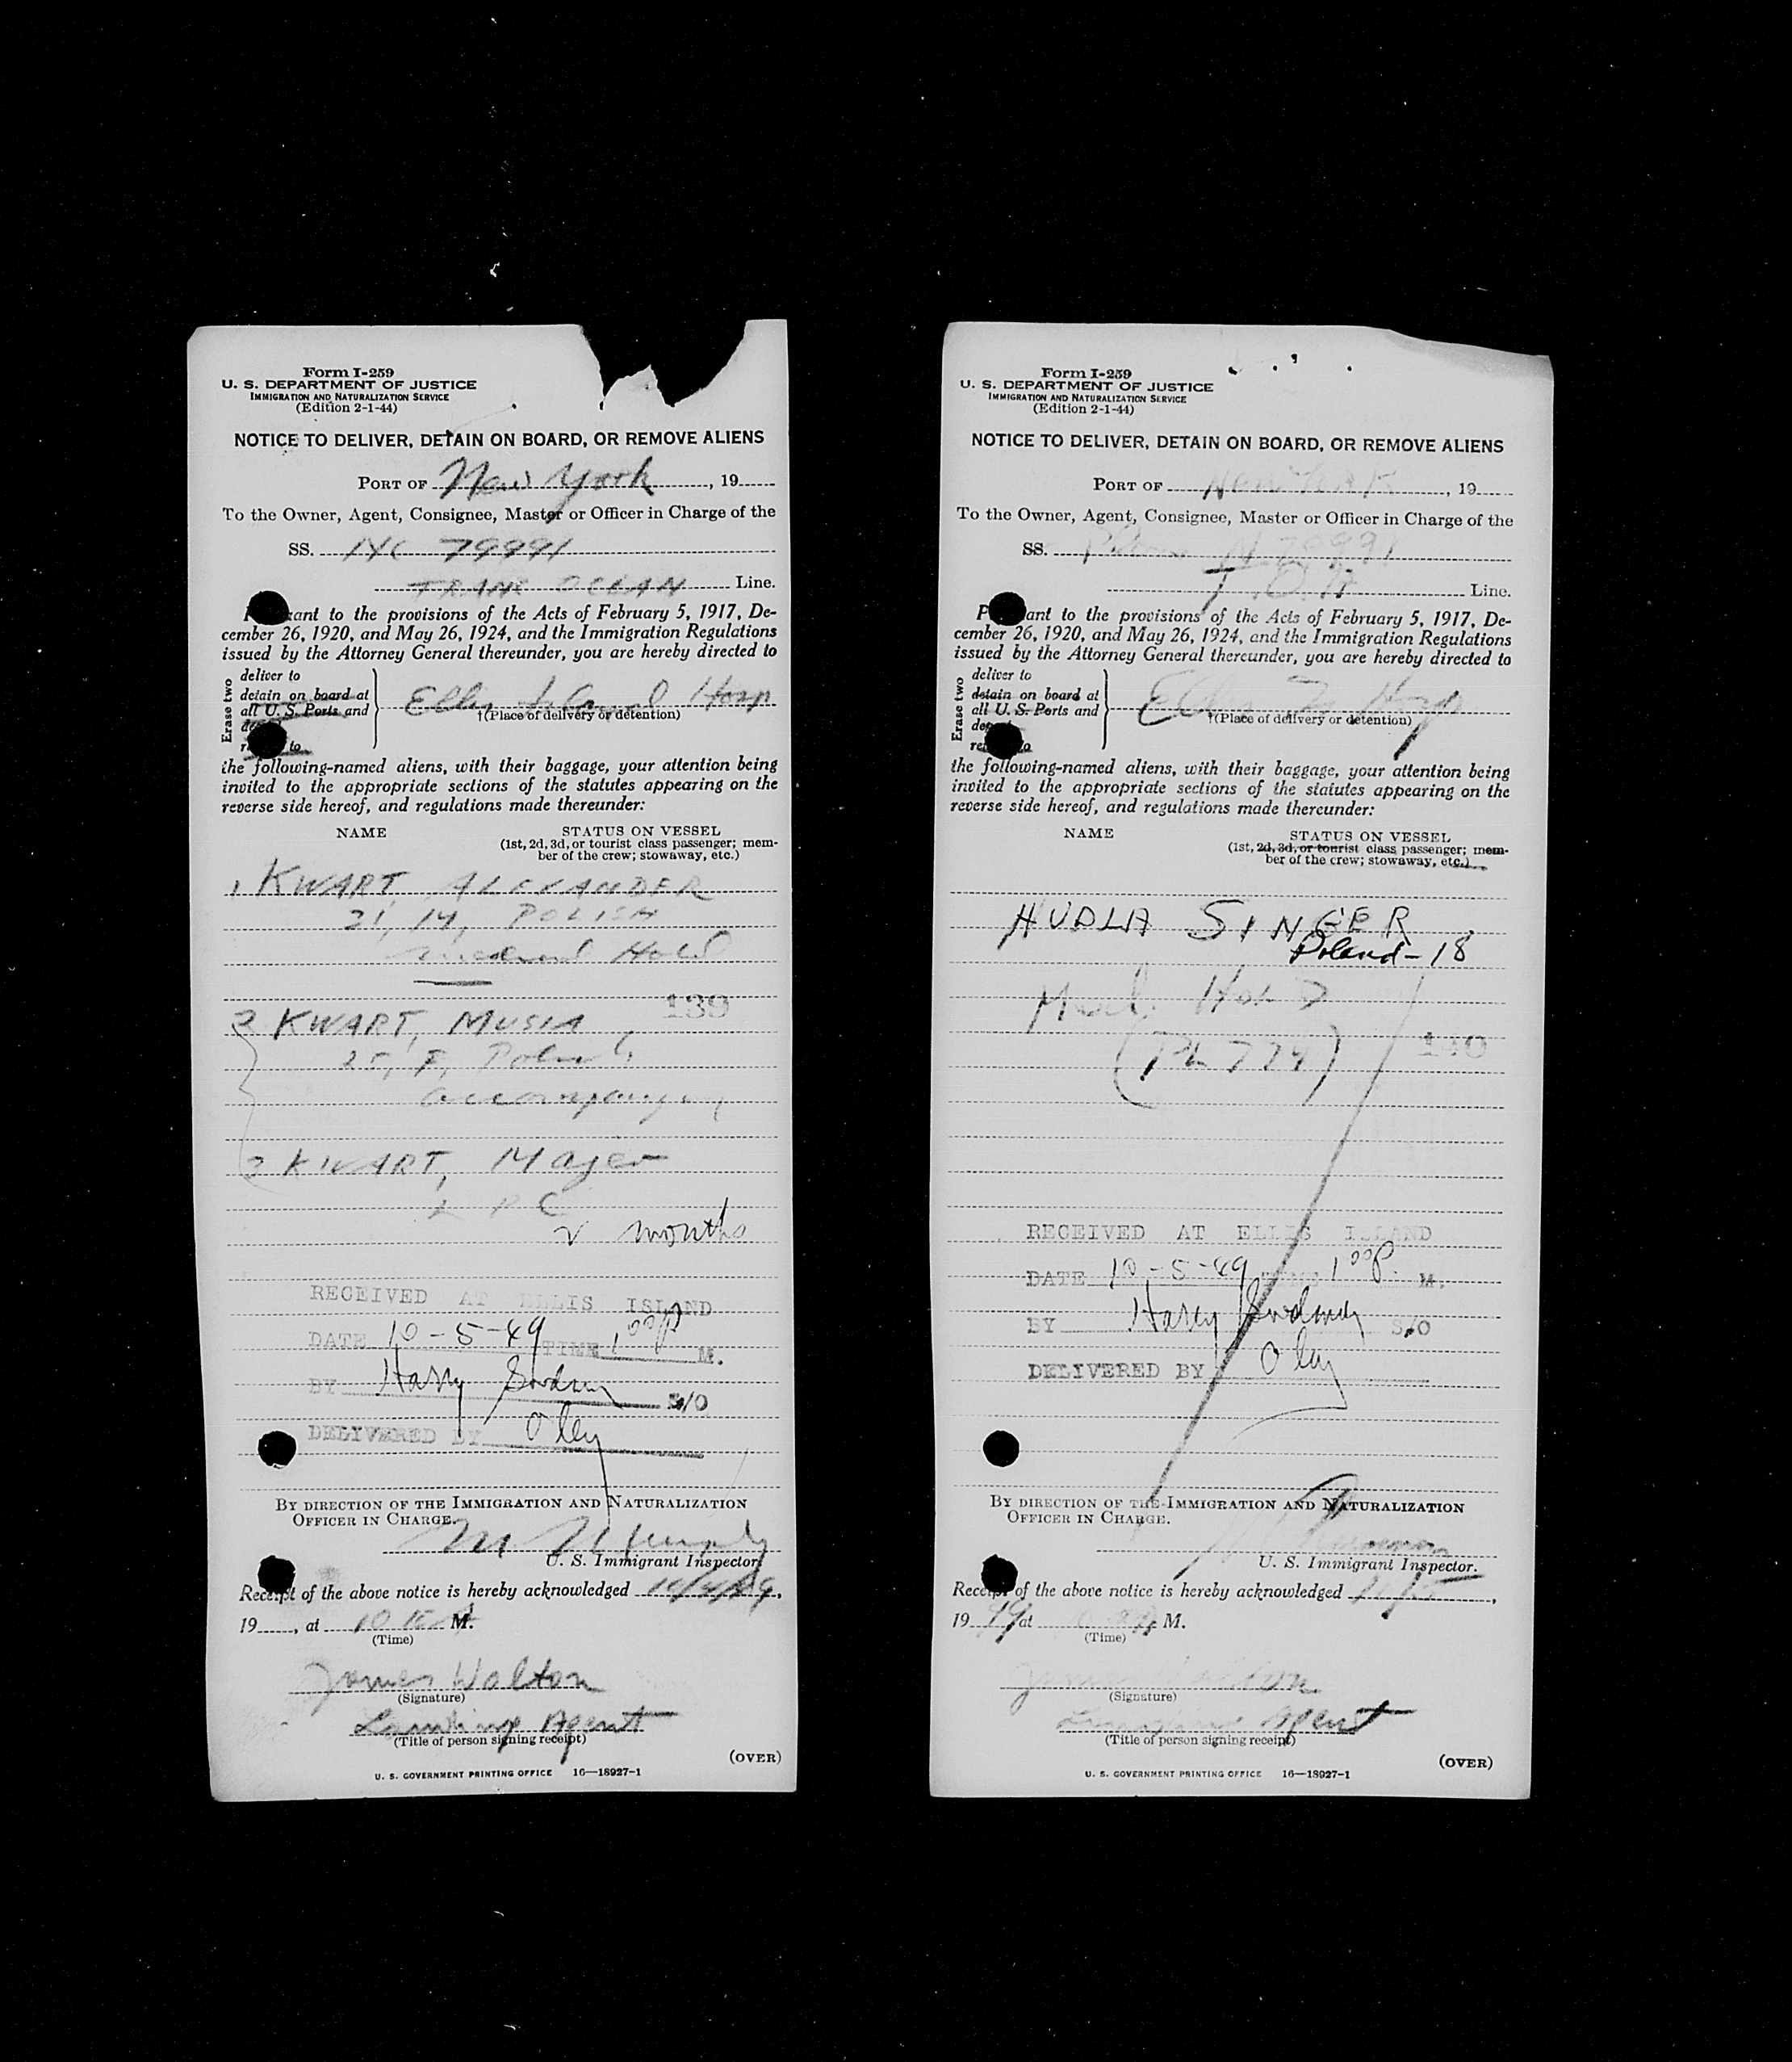 Form I-259
U. S. DEPARTMENT OF JUSTICE
IMMIGRATION AND NATURALIZATION SERVICE
(Edition 2-1-44)
NOTICE TO DELIVER, DETAIN ON BOARD, OR REMOVE ALIENS
PORT OF New York, 19
To the Owner, Agent, Consignee, Master or Officer in Charge of the
SS. 79991
TRANS OCEAN Line.
to the provisions of the Acts of February 5, 1917, De-
cember 26, 1920, and May 26, 1924, and the Immigration Regulations
issued by the Attorney General thereunder, you are hereby directed to
Erase two
deliver to
detain on board at
all U. S. Ports and
to
Ellis Island Hosp
†(Place of delivery or detention)
the following-named aliens, with their baggage, your attention being
invited to the appropriate sections of the statutes appearing on the
reverse side hereof, and regulations made thereunder:
NAME STATUS ON VESSEL
(1st, 2d, 3d, or tourist class passenger; mem-
ber of the crew; stowaway, etc.)
1 KWART, ALEXANDER
31, M, POLISH
Medical Hold
139
2 KWART, MUSIA
25, F, Polish
accompanying
3 KWART, Majer
2 months
RECEIVED AT ELLIS ISLAND
DATE 10-5-49 TIME 1 00 P M.
BY Harry S/O
DELIVERED BY
BY DIRECTION OF THE IMMIGRATION AND NATURALIZATION
OFFICER IN CHARGE.
U. S. Immigrant Inspector.
Receipt of the above notice is hereby acknowledged
19, at 10 M.
(Time)
James Walton
(Signature)
Landing Agent
(Title of person signing receipt)
(OVER)
U. S. GOVERNMENT PRINTING OFFICE 16—18927-1
Form I-259
U. S. DEPARTMENT OF JUSTICE
IMMIGRATION AND NATURALIZATION SERVICE
(Edition 2-1-44)
NOTICE TO DELIVER, DETAIN ON BOARD, OR REMOVE ALIENS
PORT OF New York, 19
To the Owner, Agent, Consignee, Master or Officer in Charge of the
SS. Plane N 79991
T.O.A Line.
to the provisions of the Acts of February 5, 1917, De-
cember 26, 1920, and May 26, 1924, and the Immigration Regulations
issued by the Attorney General thereunder, you are hereby directed to
Erase two
deliver to
detain on board at
all U. S. Ports and
Ellis I Hosp
†(Place of delivery or detention)
the following-named aliens, with their baggage, your attention being
invited to the appropriate sections of the statutes appearing on the
reverse side hereof, and regulations made thereunder:
NAME STATUS ON VESSEL
(1st, 2d, 3d, or tourist class passenger; mem-
ber of the crew; stowaway, etc.)
HUDLA SINGER
Poland-18
Med. Hold
140
RECEIVED AT ELLIS ISLAND
DATE 10-5-49 TIME 1 00 P. M.
BY Harry S/O
DELIVERED BY
BY DIRECTION OF THE IMMIGRATION AND NATURALIZATION
OFFICER IN CHARGE.
U. S. Immigrant Inspector.
Receipt of the above notice is hereby acknowledged 10/5,
19 49 at M.
(Time)
James Walton
(Signature)
Landing Agent
(Title of person signing receipt)
(OVER)
U. S. GOVERNMENT PRINTING OFFICE 16—18927-1